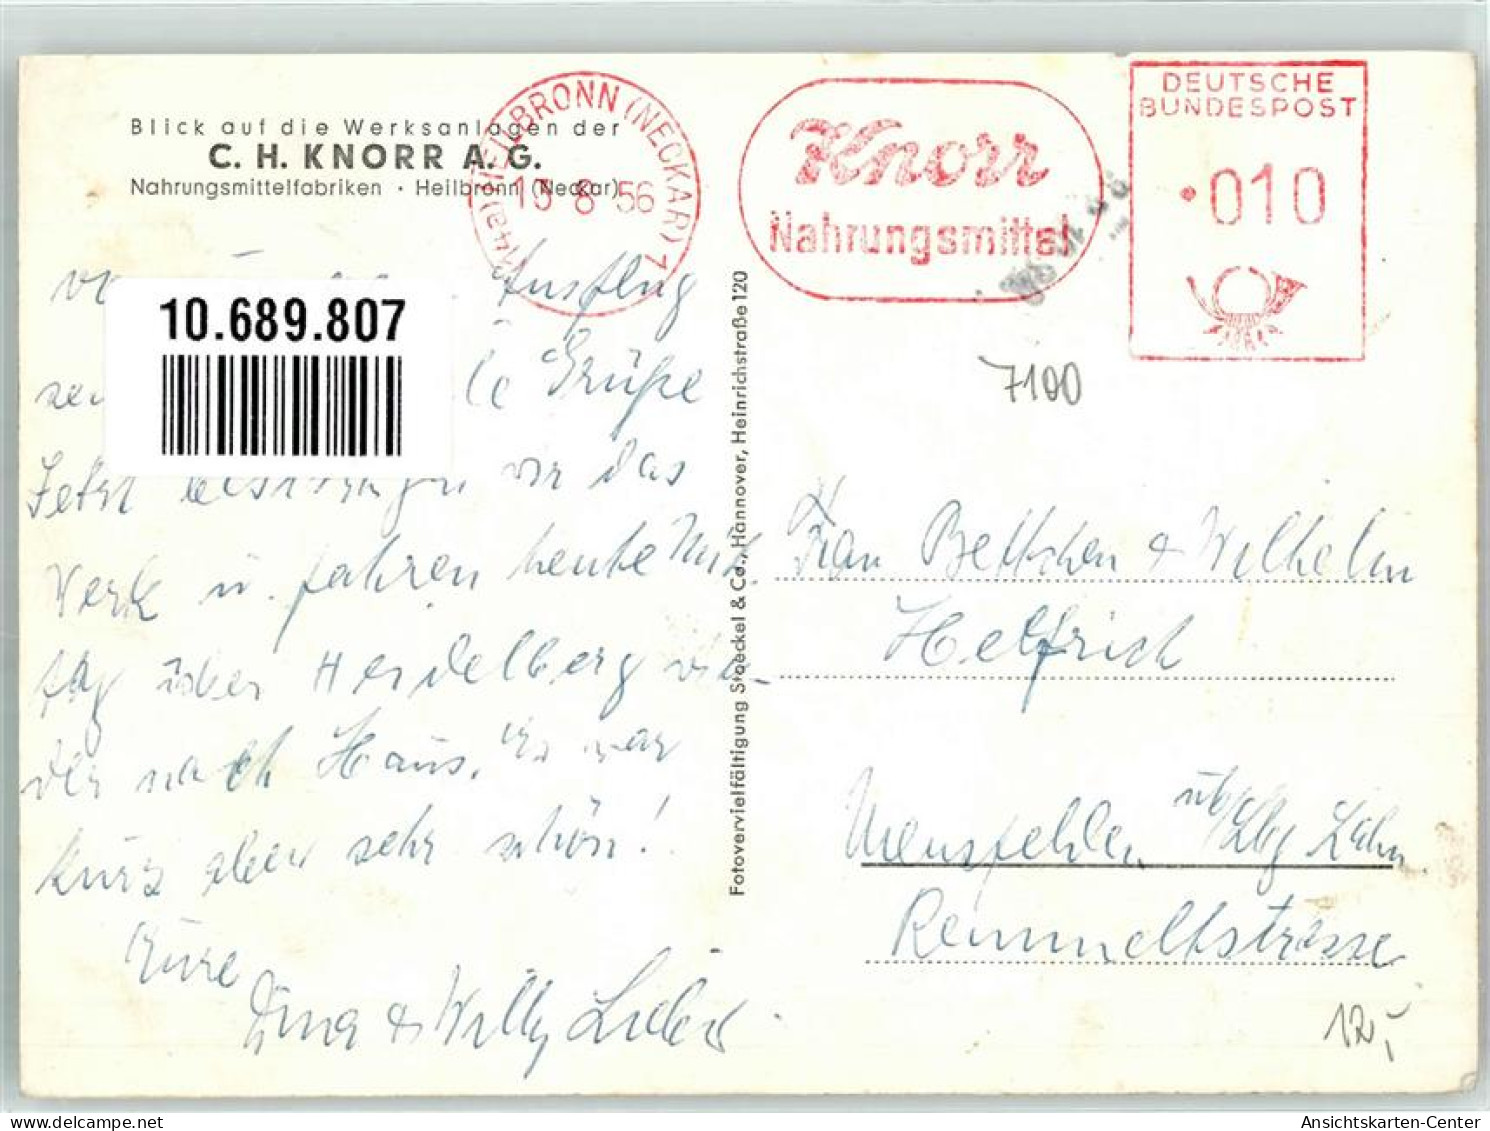 Blick auf die Werksanlagen der
C. H. KNORR A. G.
Nahrungsmittelfabriken · Heilbronn (Neckar)
(14a) HEILBRONN (NECKAR) 1
8 56
Knorr
Nahrungsmittel
DEUTSCHE
BUNDESPOST
010
7100
10.689.807
Ausflug
Grüße
Jetzt wir das
Werk u. fahren heute Mit
tag über Heidelberg wie-
der nach Haus. Es war
kurz aber sehr schön!
Eure
& Willy
Fotovervielfältigung Stoeckel & Co., Hannover, Heinrichstraße 120
Frau Bettchen & Wilhelm
Helfrich
Mensfelden üb/Lbg Lahn
12,-
delcampe.net
Ansichtskarten-Center